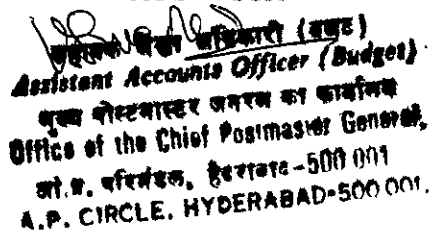 सहायक लेखा अधिकारी (बजट)
Assistant Accounts Officer (Budget)
मुख्य पोस्टमास्टर जनरल का कार्यालय
Office of the Chief Postmaster General,
आं.प्र. परिमंडल, हैदराबाद-500 001
A.P. CIRCLE, HYDERABAD-500 001.